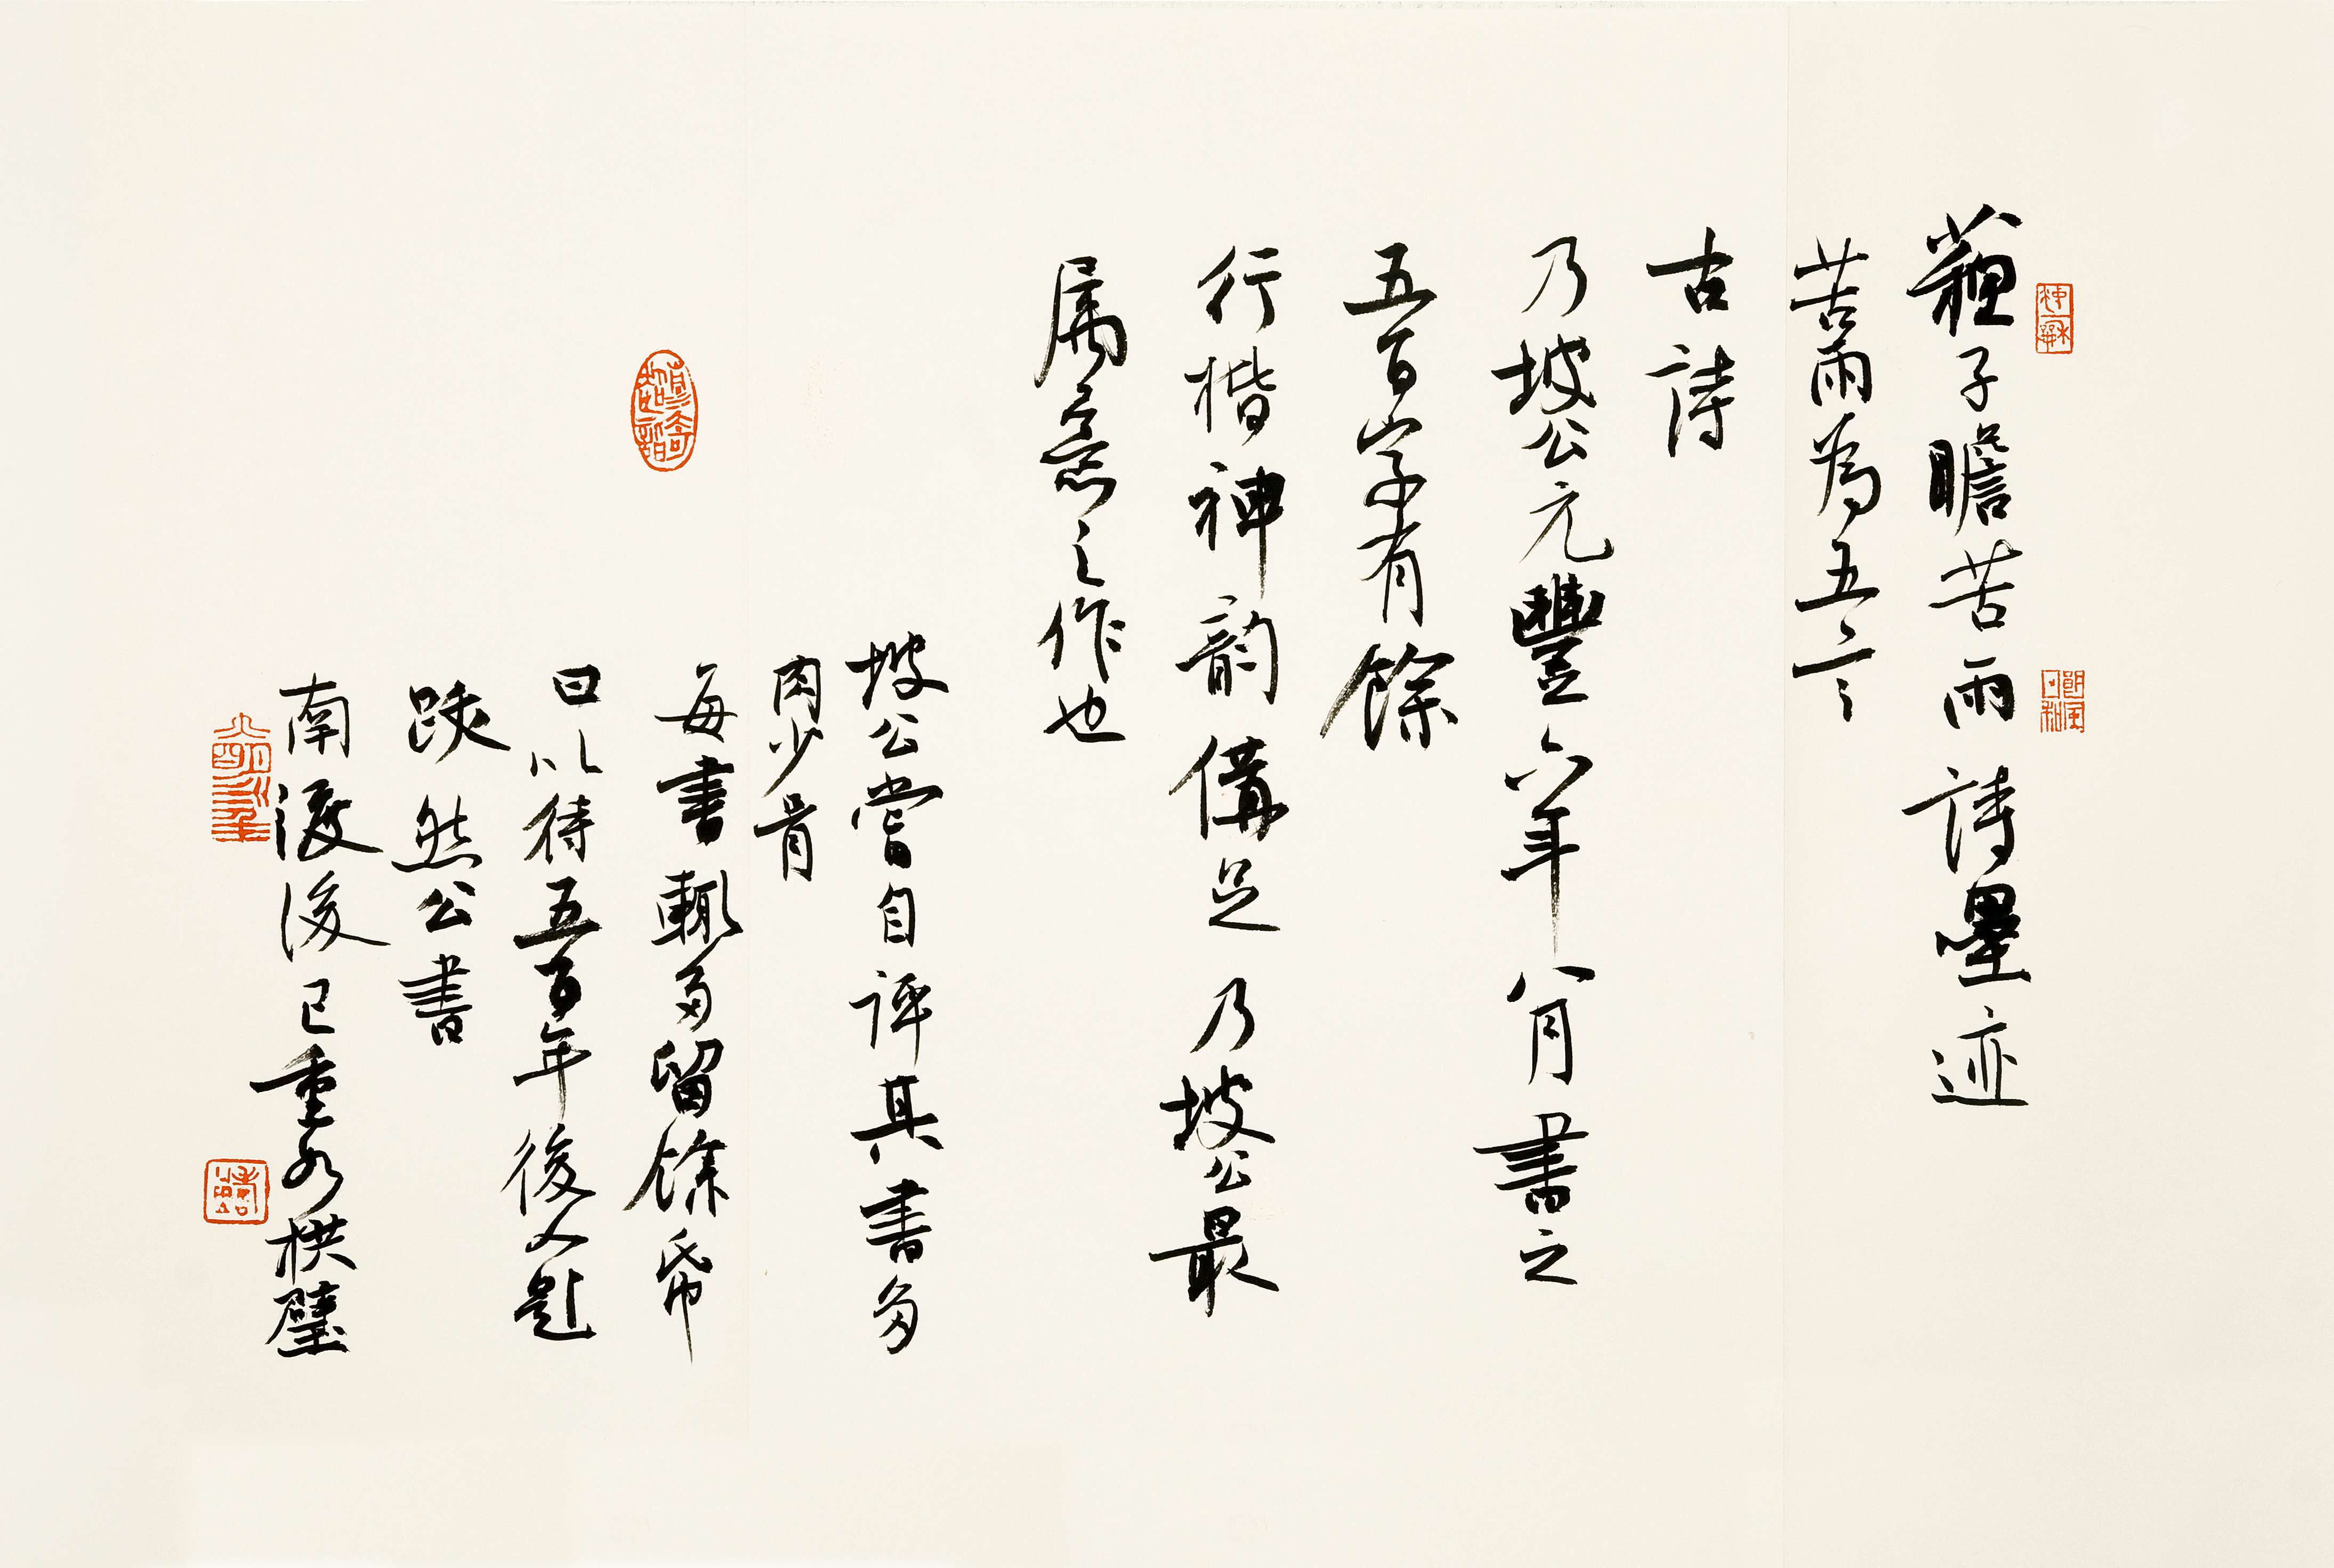 蘇子瞻苦雨詩墨迹
苦雨為五言
古詩
乃坡公元豐六年八月書之
五百字有餘
行楷神韵備足乃坡公最
屬意之作也
坡公嘗自評其書多
肉少骨
每書輒多留餘帋
曰以待五百年後人題
跋然公書
南渡後已重如栱璧